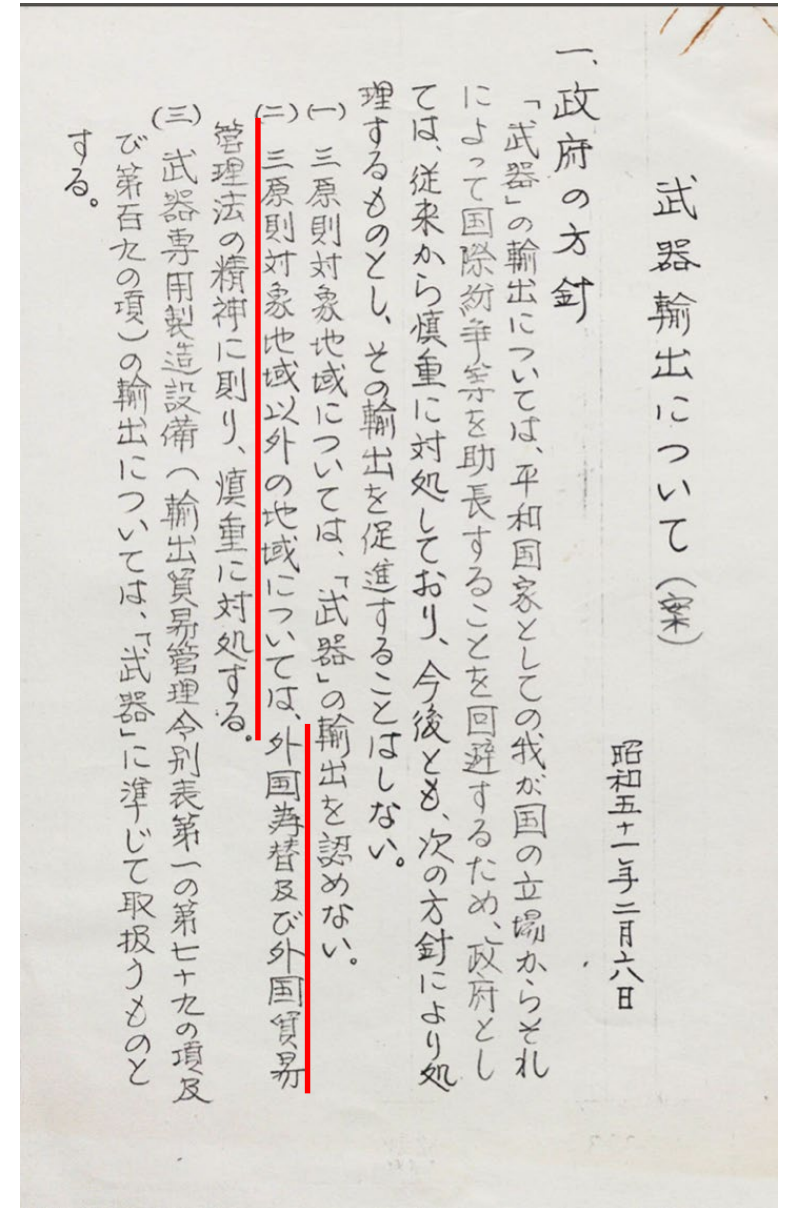 武器輸出について(案)
昭和五十一年二月六日
一、政府の方針
「武器」の輸出については、平和国家としての我が国の立場からそれ
によって国際紛争等を助長することを回避するため、政府とし
ては、従来から慎重に対処しており、今後とも、次の方針により処
理するものとし、その輸出を促進することはしない。
(一) 三原則対象地域については、「武器」の輸出を認めない。
(二) 三原則対象地域以外の地域については、外国為替及び外国貿易
管理法の精神に則り、慎重に対処する。
(三) 武器専用製造設備(輸出貿易管理令別表第一の第七十九の項及
び第百九の項)の輸出については、「武器」に準じて取扱うものと
する。